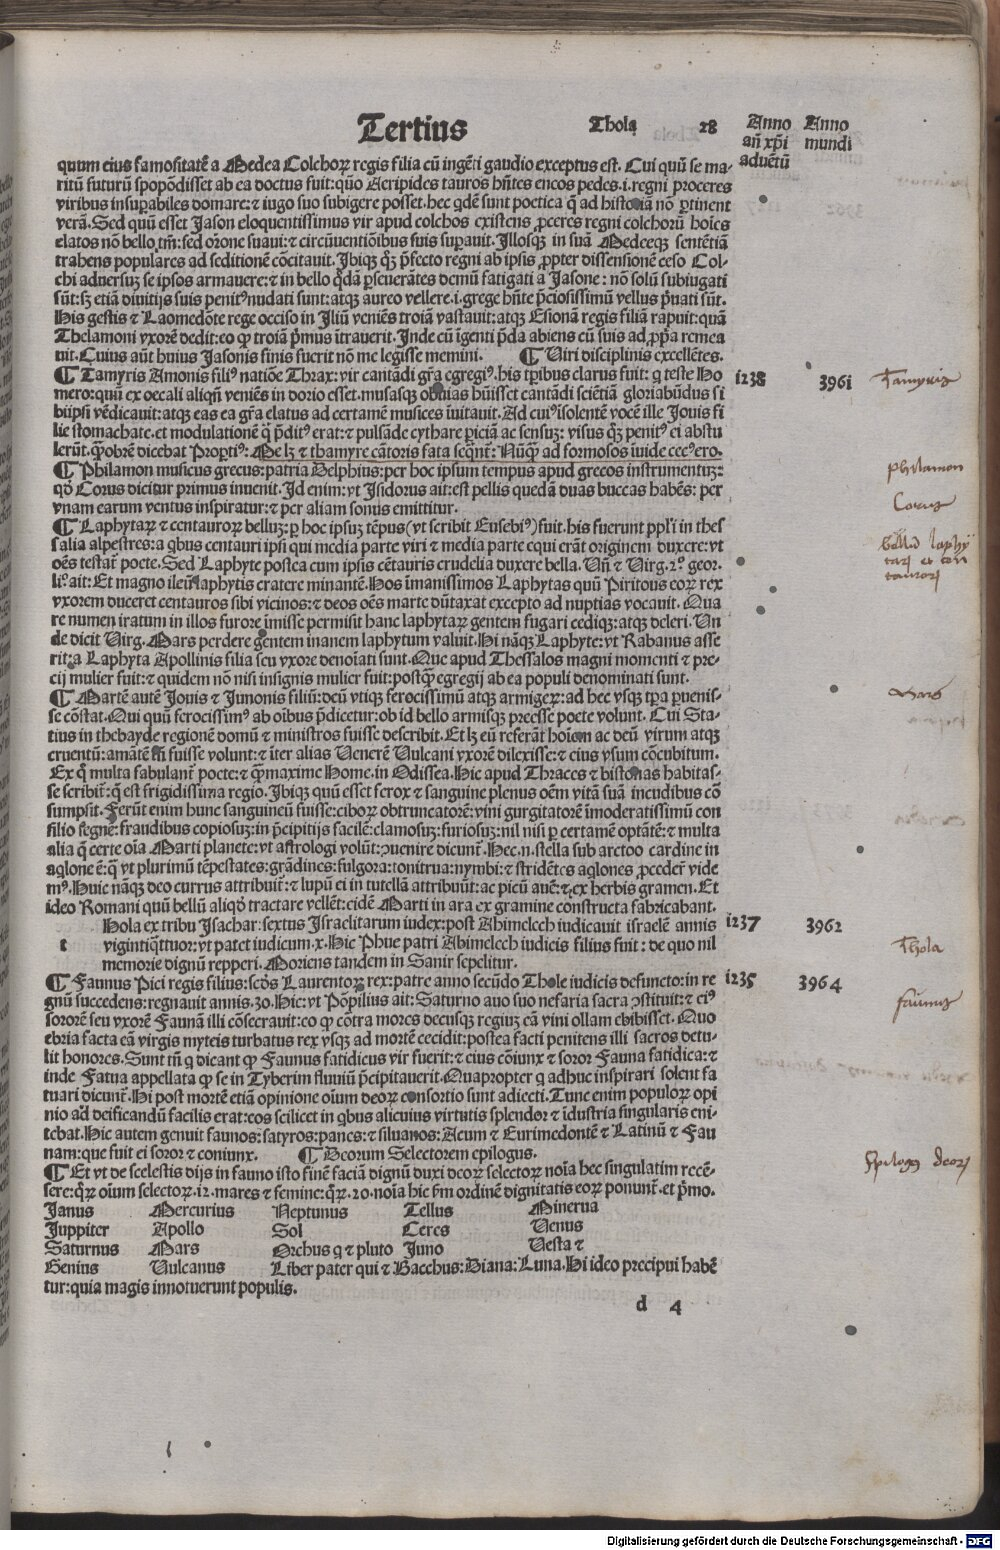 Tertius Thola 28 Anno Anno
añ xp̄i mundi
aduētū
quum eius famositatē a Medea Colchoꝝ regis filia cū ingēti gaudio exceptus est. Cui quū se ma⸗
ritū futurū spopōdisset ab ea doctus fuit: quō Aeripides tauros hñtes eneos pedes .i. regni proceres
viribus insupabiles domare: ⁊ iugo suo subigere posset. hec qdē sunt poetica q̄ ad historiā nō ꝑtinent
verā. Sed quū esset Jason eloquentissimus vir apud colchos existens ꝓceres regni colchorū hoies
elatos nō bello tm̄: sed orōne suaui: ⁊ circūuentiōibus suis suꝑauit. Illosqꝫ in suā Medeeqꝫ sentētiā
trahens populares ad seditionē cōcitauit. Ibiqꝫ qꝫ p̄fecto regni ab ipsis ꝓpter dissensionē ceso Col⸗
chi aduersuꝫ se ipsos armauere: ⁊ in bello qdā ꝑseuerātes demū fatigati a Jasone: nō solū subiugati
sūt: sꝫ etiā diuitijs suis penitꝰ nudati sunt: atqꝫ aureo vellere .i. grege hñte p̄ciosissimū vellus p̄uati sūt.
His gestis ⁊ Laomedōte rege occiso in Iliū veniēs troiā vastauit: atqꝫ Esionā regis filiā rapuit: quā
Thelamoni vxorē dedit: eo ꝙ troiā p̄mus ītrauerit. Inde cū īgenti p̄da abiens cū suis ad ꝓp̄a remea
uit. Cuius aūt huius Jasonis finis fuerit nō me legisse memini. ¶ Viri disciplinis excellētes.
¶ Tamyris Amonis filiꝰ natiōe Thrax: vir cantādi gr̄a egregiꝰ. his tꝑibus clarus fuit: q teste Ho 1238 3961 Tamyris
mero: quū ex oecali aliqn̄ veniēs in dorio esset. musasqꝫ obuias hūisset cantādi sciētiā gloriabūdus si
biipsi vēdicauit: atqꝫ eas ea gr̄a elatus ad certamē musices īuitauit. Ad cuiꝰ isolentē vocē ille Jouis fi
lie stomachate. et modulationē q̄ p̄ditꝰ erat: ⁊ pulsāde cythare ꝑiciā ac sensuꝫ: visus qꝫ penitꝰ ei abstu
lerūt. ꝙobrē dicebat Proꝑtiꝰ: Me lꝫ ⁊ thamyre cātoris fata seqn̄t: Nūꝙ ad formosos īuide cecꝰ ero.
¶ Philamon musicus grecus: patria Delphius: per hoc ipsum tempus apud grecos instrumentuꝫ: Philamon
qd̄ Corus dicitur primus inuenit. Id enim: vt Isidorus ait: est pellis quedā duas buccas habēs: per Corus
vnam earum ventus inspiratur: ⁊ per aliam sonus emittitur.
¶ Laphytaꝝ ⁊ centauroꝝ belluꝫ: ꝑ hoc ipsuꝫ tēpus (vt scribit Eusebiꝰ) fuit. his fuerunt ppl̄i in thes
salia alpestres: a qbus centauri ipsi qui media parte viri ⁊ media parte equi erāt originem duxere: vt bellū laphy
oēs testāt poete. Sed Laphyte postea cum ipsis cētauris crudelia duxere bella. Vn̄ ⁊ Virg. 2º. geor. tarꝝ et cen
liº. ait: Et magno ileū laphytis cratere minantē. Hos īmanissimos Laphytas quū Piritous eoꝝ rex tauroꝝ
vxorem duceret centauros sibi vicinos: ⁊ deos oēs marte dūtaxat excepto ad nuptias vocauit. Qua
re numen iratum in illos furorē imisse permisit hanc laphytaꝝ gentem fugari cediqꝫ: atqꝫ deleri. Vn
de dicit Virg. Mars perdere gentem inanem laphytum valuit. Hi nāqꝫ Laphyte: vt Rabanus asse
rit: a Laphyta Apollinis filia seu vxore denoīati sunt. Que apud Thessalos magni momenti ⁊ pre⸗
cij mulier fuit: ⁊ quidem nō nisi insignis mulier fuit: postꝙ egregij ab ea populi denominati sunt.
¶ Martē autē Jouis ⁊ Junonis filiū: deū vtiqꝫ ferocissimū atqꝫ armigeꝝ: ad hec vsqꝫ tꝑa ꝑuenis⸗ Mars
se cōstat. Qui quū ferocissimꝰ ab oībus p̄dicetur: ob id bello armisqꝫ preesse poete volunt. Cui Sta⸗
tius in thebayde regionē domū ⁊ ministros fuisse describit. Et lꝫ eū referāt hoīem ac deū virum atqꝫ
cruentū: amātē tn̄ fuisse volunt: ⁊ īter alias Venerē Vulcani vxorē dilexisse: ⁊ eius vsum cōcubitum.
Ex q̄ multa fabulant̄ poete: ⁊ ꝙmaxime Home. in Odissea. Hic apud Thraces ⁊ histonas habitas⸗
se scribit̄: q̄ est frigidissima regio. Ibiqꝫ quū esset ferox ⁊ sanguine plenus oēm vitā suā incudibus cō
sumpsit. Ferūt enim hunc sanguineū fuisse: ciboꝝ obtruncatorē: vini gurgitatorē īmoderatissimū con
silio segnē: fraudibus copiosuꝫ: in p̄cipitijs facilē: clamosuꝫ: furiosuꝫ: nil nisi ꝑ certamē optātē: ⁊ multa
alia q̄ certe oīa Marti planete: vt astrologi volūt: ꝯuenire dicunt̄. Hec .n. stella sub arctoo cardine in
aqlone ē: q̄ vt plurimū tēpestates: grādines: fulgora: tonitrua: nymbi: ⁊ stridētes aqlones ꝓceder̄ vide
mꝰ. Huic nāqꝫ deo currus attribuit̄: ⁊ lupū ei in tutellā attribuūt: ac picū auē: ⁊ ex herbis gramen. Et
ideo Romani quū bellū aliqd̄ tractare vellēt: eidē Marti in ara ex gramine constructa fabricabant.
Hola ex tribu Isachar: sextus Israelitarum iudex: post Abimelech iudicauit israelē annis 1237 3962
t vigintiquttuor: vt patet iudicum .x. Hic Phue patri Abimelech iudicis filius fuit: de quo nil Thola
memorie dignū repperi. Moriens tandem in Sanir sepelitur.
¶ Faunus Pici regis filius: scd̄s Laurentoꝝ rex: patre anno secūdo Thole iudicis defuncto: in re 1235 3964
gnū succedens: regnauit annis .30. Hic: vt Pōpilius ait: Saturno auo suo nefaria sacra ꝯstituit: ⁊ eiꝰ Faunus
sororē seu vxorē Faunā illi cōsecrauit: eo ꝙ cōtra mores decusqꝫ regiuꝫ eā vini ollam ebibisset. Quo
ebria facta eā virgis myrteis turbatus rex vsqꝫ ad mortē cecidit: postea facti penitens illi sacros detu⸗
lit honores. Sunt tn̄ q dicant ꝙ Faunus fatidicus vir fuerit: ⁊ eius cōiunx ⁊ soror Fauna fatidica: ⁊
inde Fatua appellata ꝙ se in Tyberim fluuiū p̄cipitauerit. Quapropter q adhuc inspirari solent fa
tuari dicunt̄. Hi post mortē etiā opinione oīum deoꝝ consortio sunt adiecti. Tunc enim populoꝝ opi
nio ad deificandū facilis erat: eos scilicet in qbus alicuius virtutis splendor ⁊ īdustria singularis eni⸗
tebat. Hic autem genuit faunos: satyros: panes: ⁊ siluanos: Acum ⁊ Eurimedontē ⁊ Latinū ⁊ Fau
nam: que fuit ei soror ⁊ coniunx. ¶ Deorum Selectorem epilogus. Epilogus deoꝝ
¶ Et vt de scelestis dijs in fauno isto finē faciā dignū duxi deoꝝ selectoꝝ noīa hec singulatim recē⸗
sere: qꝝ oīum selectoꝝ .12. mares ⁊ femine: qꝝ .20. noīa hic s̄m ordinē dignitatis eoꝝ ponunt̄. et p̄mo.
Janus Mercurius Neptunus Tellus Minerua
Juppiter Apollo Sol Ceres Venus
Saturnus Mars Orchus q ⁊ pluto Juno Vesta ⁊
Genius Vulcanus Liber pater qui ⁊ Bacchus: Diana: Luna. Hi ideo precipui habē
tur: quia magis innotuerunt populis.
d 4
Digitalisierung gefördert durch die Deutsche Forschungsgemeinschaft - DFG